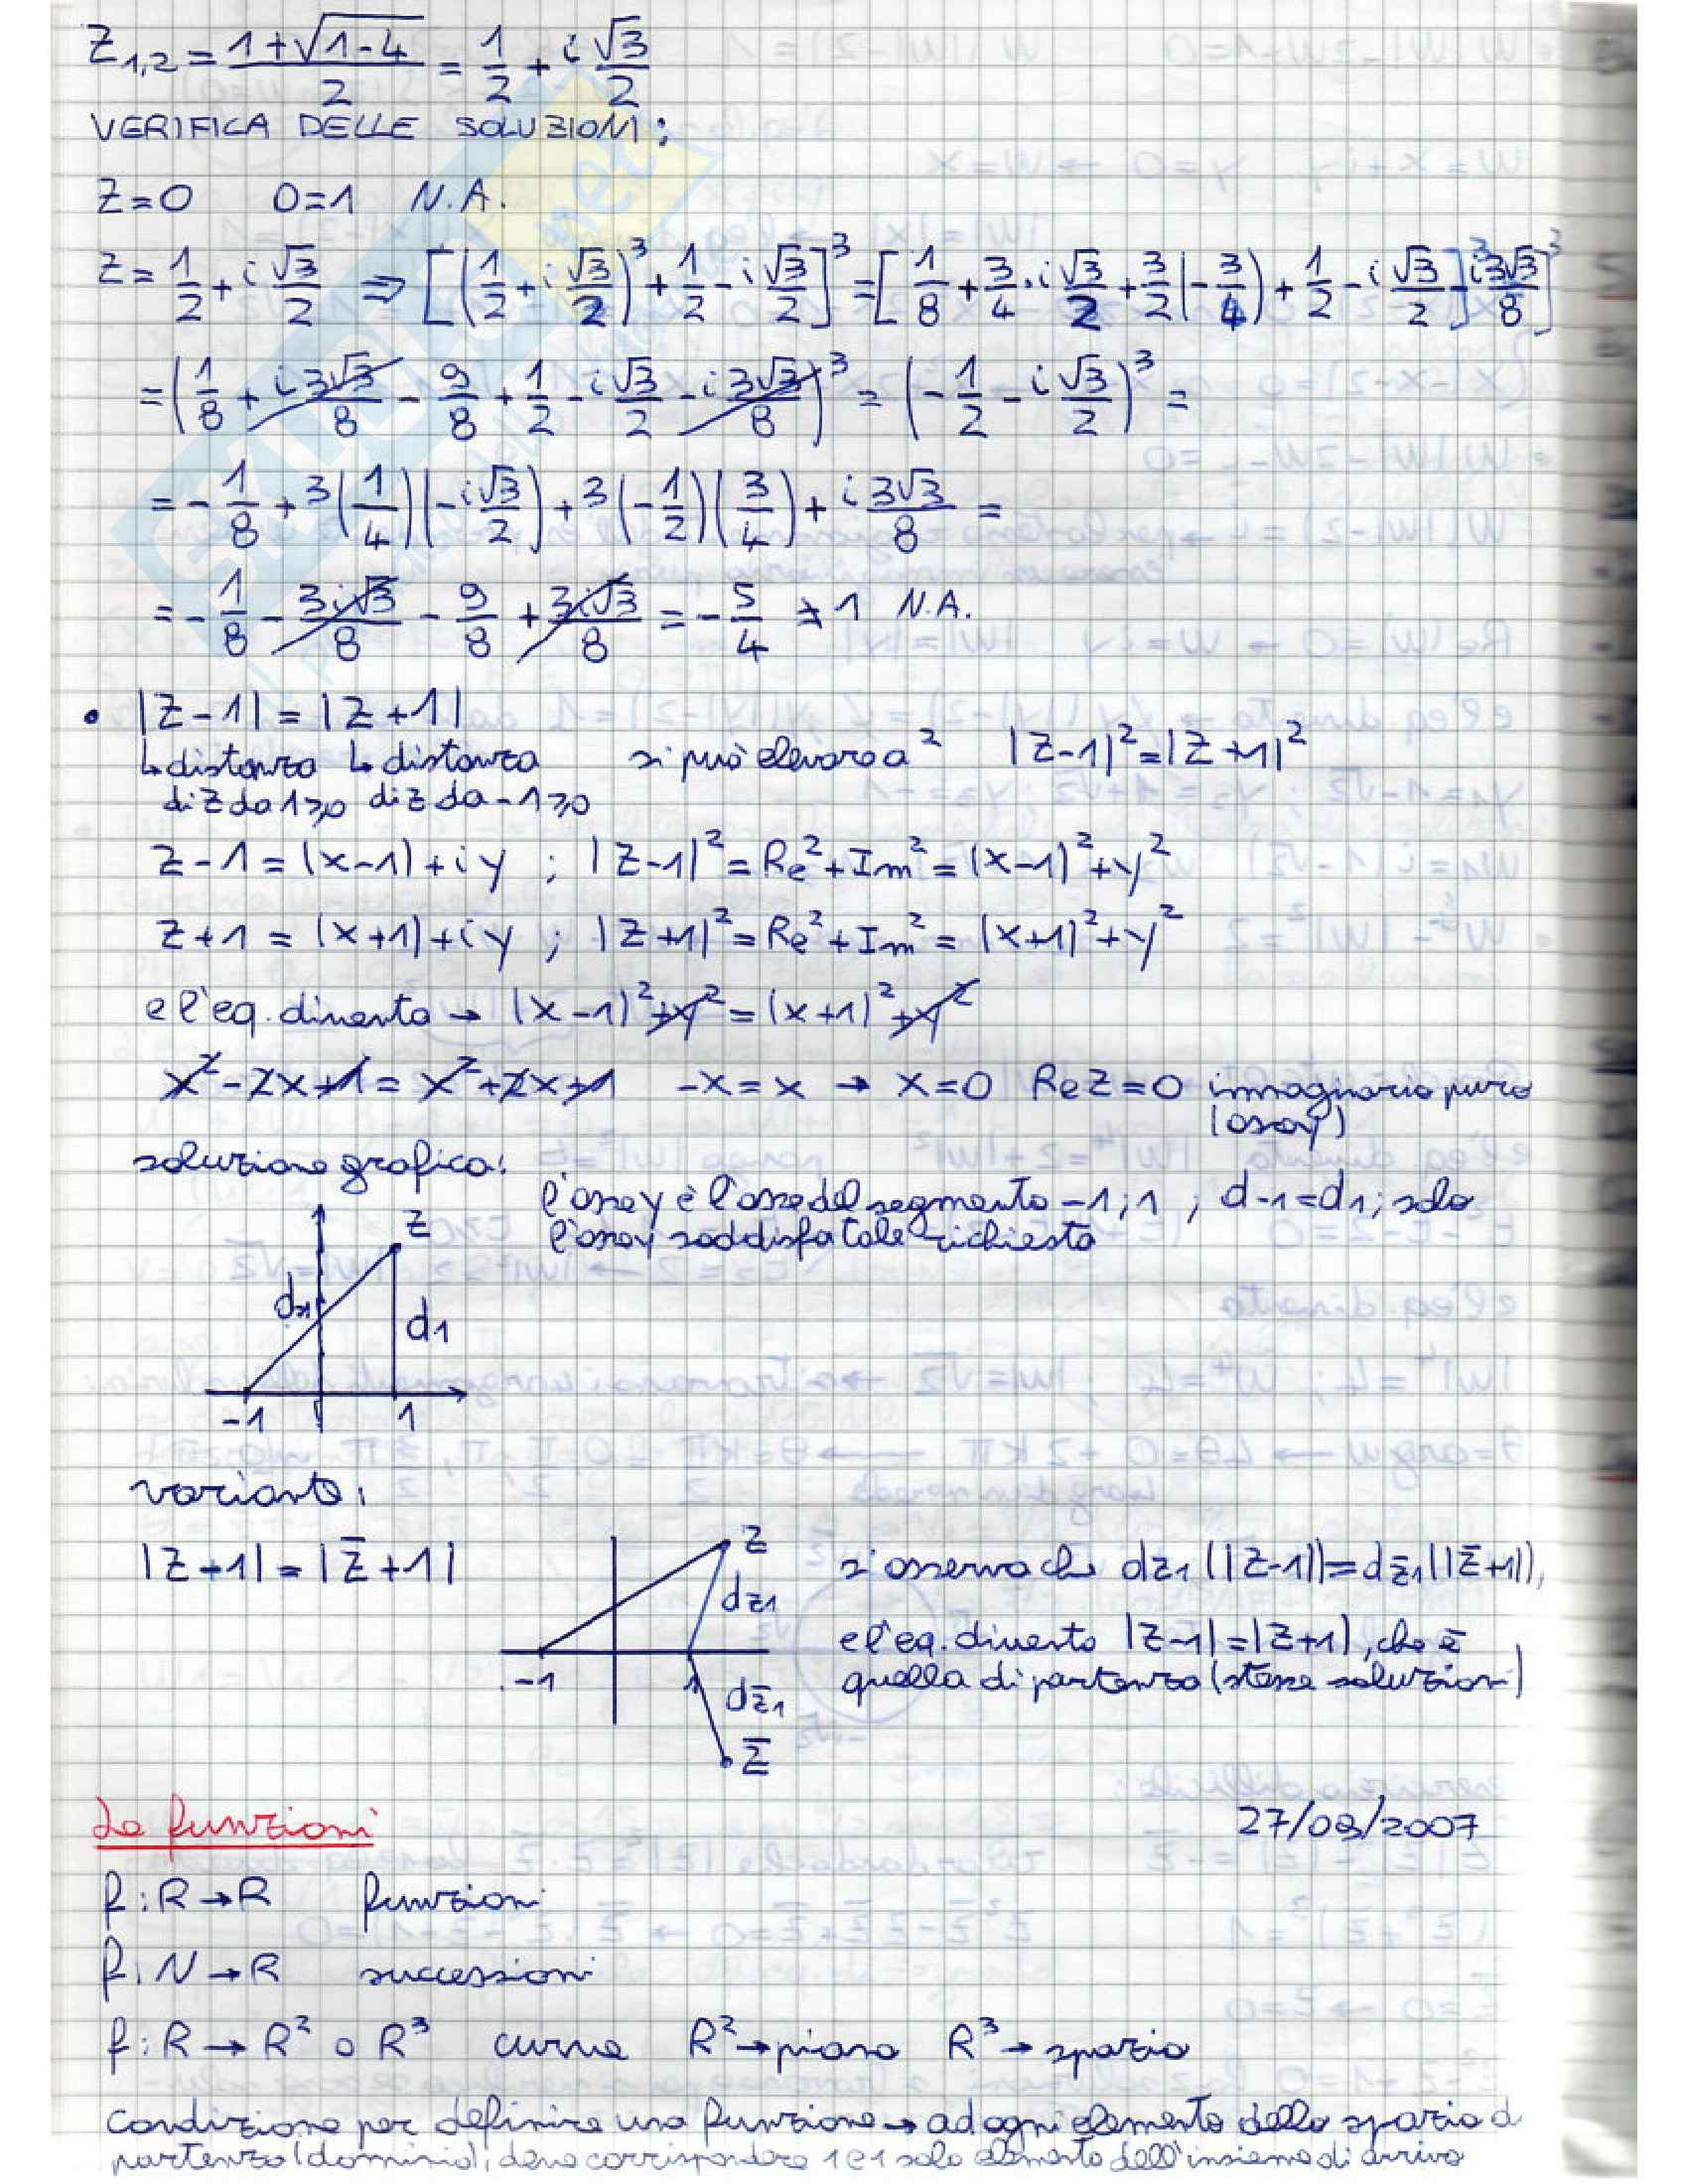 Z1,2 = (1+√(1-4))/2 = 1/2 + i √3/2
VERIFICA DELLE SOLUZIONI:
Z=0 0=1 N.A.
Z = 1/2 + i √3/2 ⇒ [(1/2 + i √3/2)³ + 1/2 - i √3/2]³ = [1/8 + 3/4 · i √3/2 + 3/2 (-3/4) + 1/2 - i √3/2 - i 3√3/8]³
= (1/8 + i 3√3/8 - 9/8 + 1/2 - i √3/2 - i 3√3/8)³ = (-1/2 - i √3/2)³ =
= -1/8 + 3(1/4)(-i √3/2) + 3(-1/2)(3/4) + i 3√3/8 =
= -1/8 - 3i√3/8 - 9/8 + 3i√3/8 = -5/4 ≠ 1 N.A.
• |Z-1| = |Z+1|
↳ distanza ↳ distanza si può elevare a ² |Z-1|² = |Z+1|²
di Z da 1≥0 di Z da -1≥0
Z-1 = (x-1)+iy ; |Z-1|² = Re²+Im² = (x-1)²+y²
Z+1 = (x+1)+iy ; |Z+1|² = Re²+Im² = (x+1)²+y²
e l'eq. diventa → (x-1)²+y² = (x+1)²+y²
x²-2x+1 = x²+2x+1 -x = x → x=0 Re Z=0 immaginario puro
(asse y)
soluzione grafica:
l'asse y è l'asse del segmento -1;1 ; d-1=d1; solo
l'asse y soddisfa tale richiesta
Z
d-1
d1
-1 1
variante:
|Z+1| = |Z̄+1|
Z
dz1
-1 1
dz̄1
Z̄
si osserva che dz1 (|Z-1|) = dz̄1 (|Z̄+1|),
e l'eq. diventa |Z-1|=|Z+1|, che è
quella di partenza (stesse soluzioni)
Le funzioni 27/09/2007
f: R → R funzioni
f: N → R successioni
f: R → R² o R³ curve R² → piano R³ → spazio
condizione per definire una funzione → ad ogni elemento dello spazio di
partenza (dominio), deve corrispondere 1 e 1 solo elemento dell'insieme di arrivo